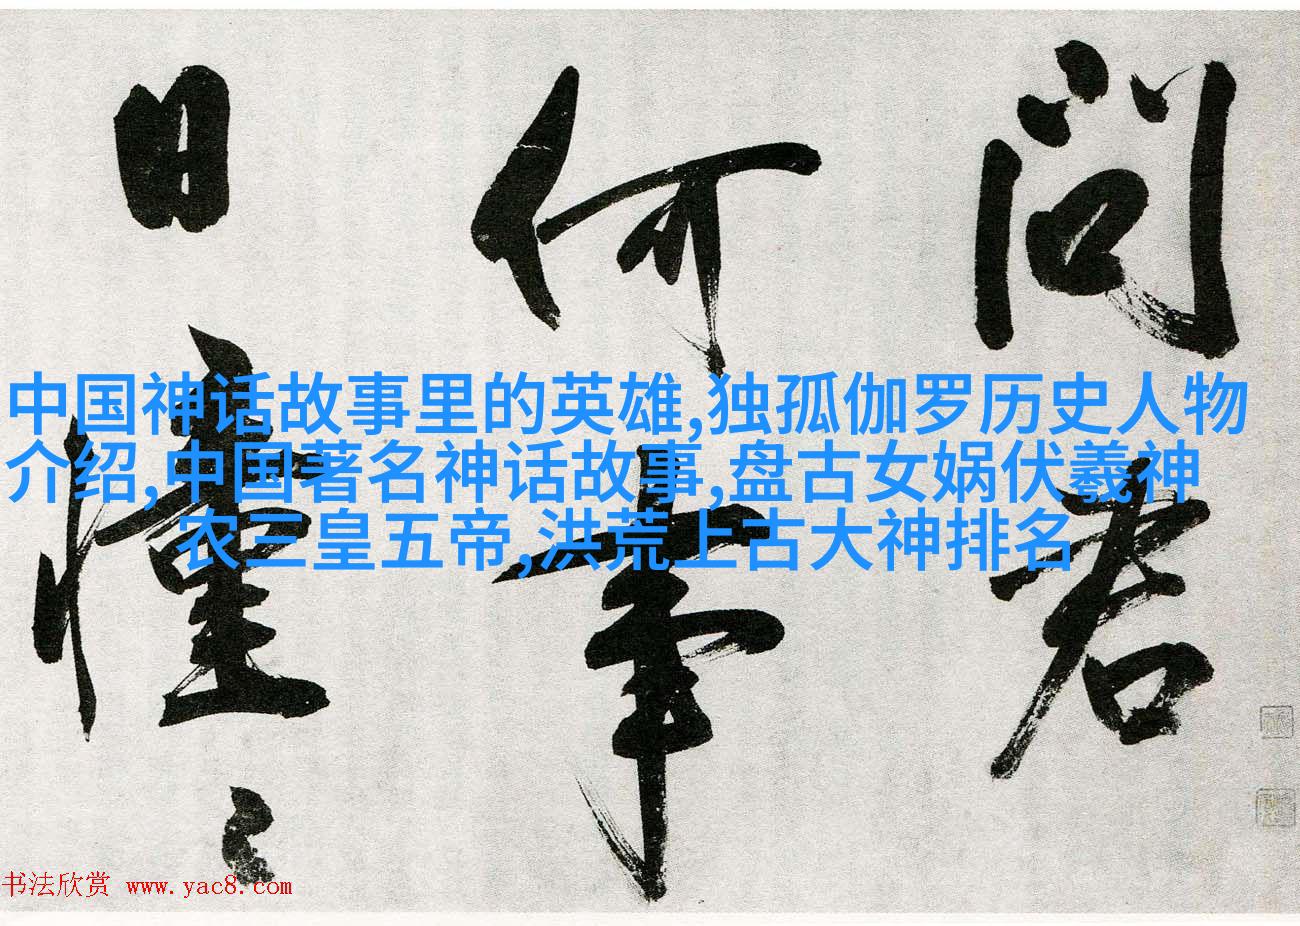 问君
何事
日憧々
中国神话故事里的英雄,独孤伽罗历史人物
介绍,中国著名神话故事,盘古女娲伏羲神
农三皇五帝,洪荒上古大神排名
书法欣赏 www.yac8.com